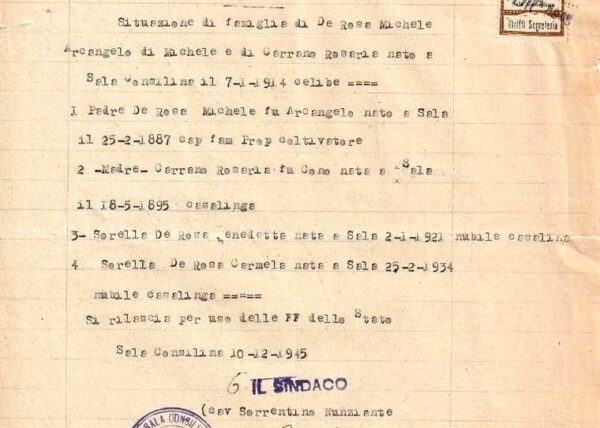 Situazione di famiglia di De Rosa Michele
Diritti Segreteria
Arcangelo di Michele e di Carrano Rosaria nato a
Sala Consilina il 7-1-1914 celibe ====
I Padre De Rosa Michele fu Arcangelo nato a Sala
il 25-2-1887 cap fam Prop coltivatore
2 -Madre- Carrano Rosaria fu Cono nata a Sala
il 18-5-1895 casalinga
3- Sorella De Rosa Benedetta nata a Sala 2-1-1921 nubile casalina
4 Sorella De Rosa Carmela nata a Sala 25-2-1934
nubile casalinga =====
Si rilascia per uso delle FF dello Stato
Sala Consilina 10-12-1945
IL SINDACO
(cav Sorrentino Nunziante
SALA CONSILI